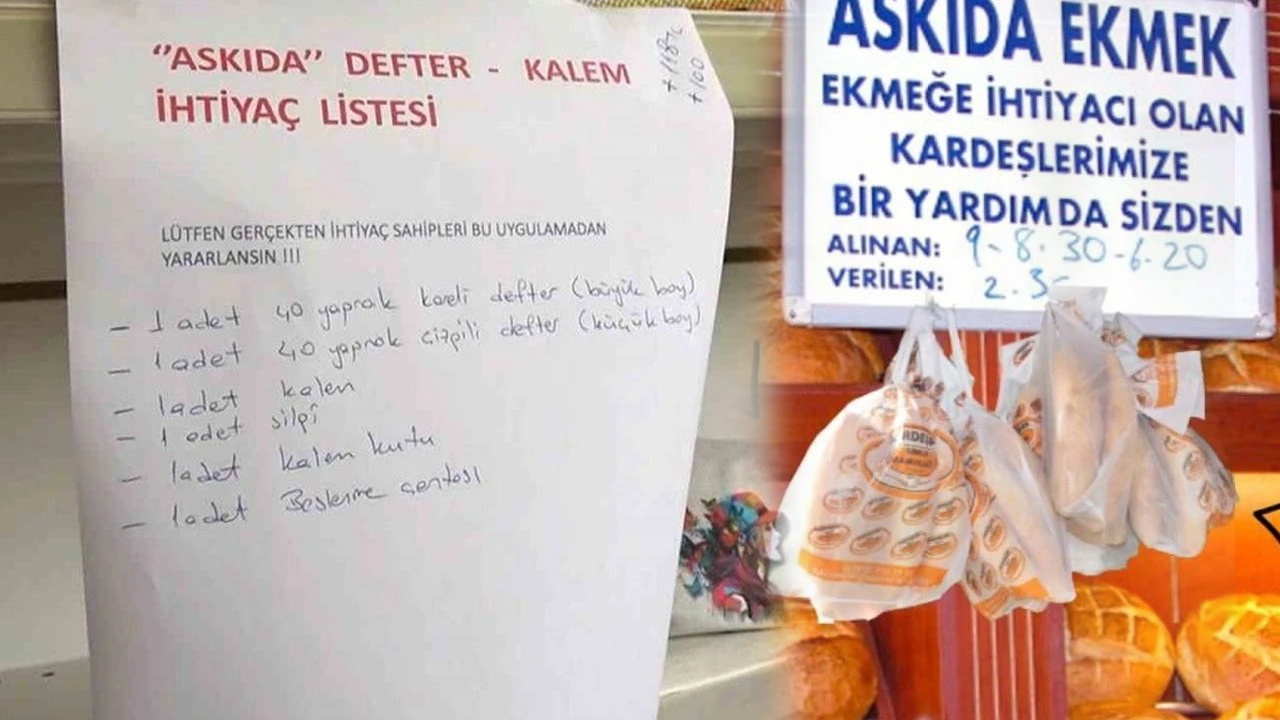 "ASKIDA" DEFTER - KALEM
İHTİYAÇ LİSTESİ
+100
LÜTFEN GERÇEKTEN İHTİYAÇ SAHİPLERİ BU UYGULAMADAN
YARARLANSIN !!!
- 1 adet 40 yaprak kareli defter (büyük boy)
- 1 adet 40 yaprak çizgili defter (küçük boy)
- 1 adet kalem
- 1 adet silgi
- 1 adet kalem kutu
- 1 adet Beslenme çantası
ASKIDA EKMEK
EKMEĞE İHTİYACI OLAN
KARDEŞLERİMİZE
BİR YARDIM DA SİZDEN
ALINAN: 9-8-30-6-20
VERİLEN: 2.3